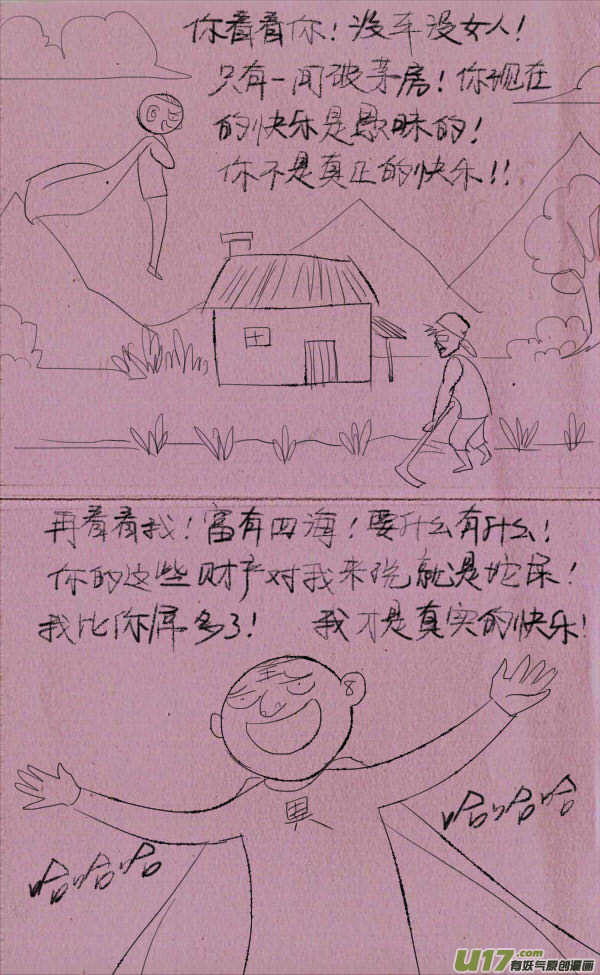 你看看你！没车没女人！
只有一间破茅房！你现在
的快乐是愚昧的！
你不是真正的快乐！！
再看看我！富有四海！要什么有什么！
你的这些财产对我来说就是坨屎！
我比你屌多了！ 我才是真实的快乐！
8
異
哈哈哈
哈哈哈
U17.com
有妖气原创漫画